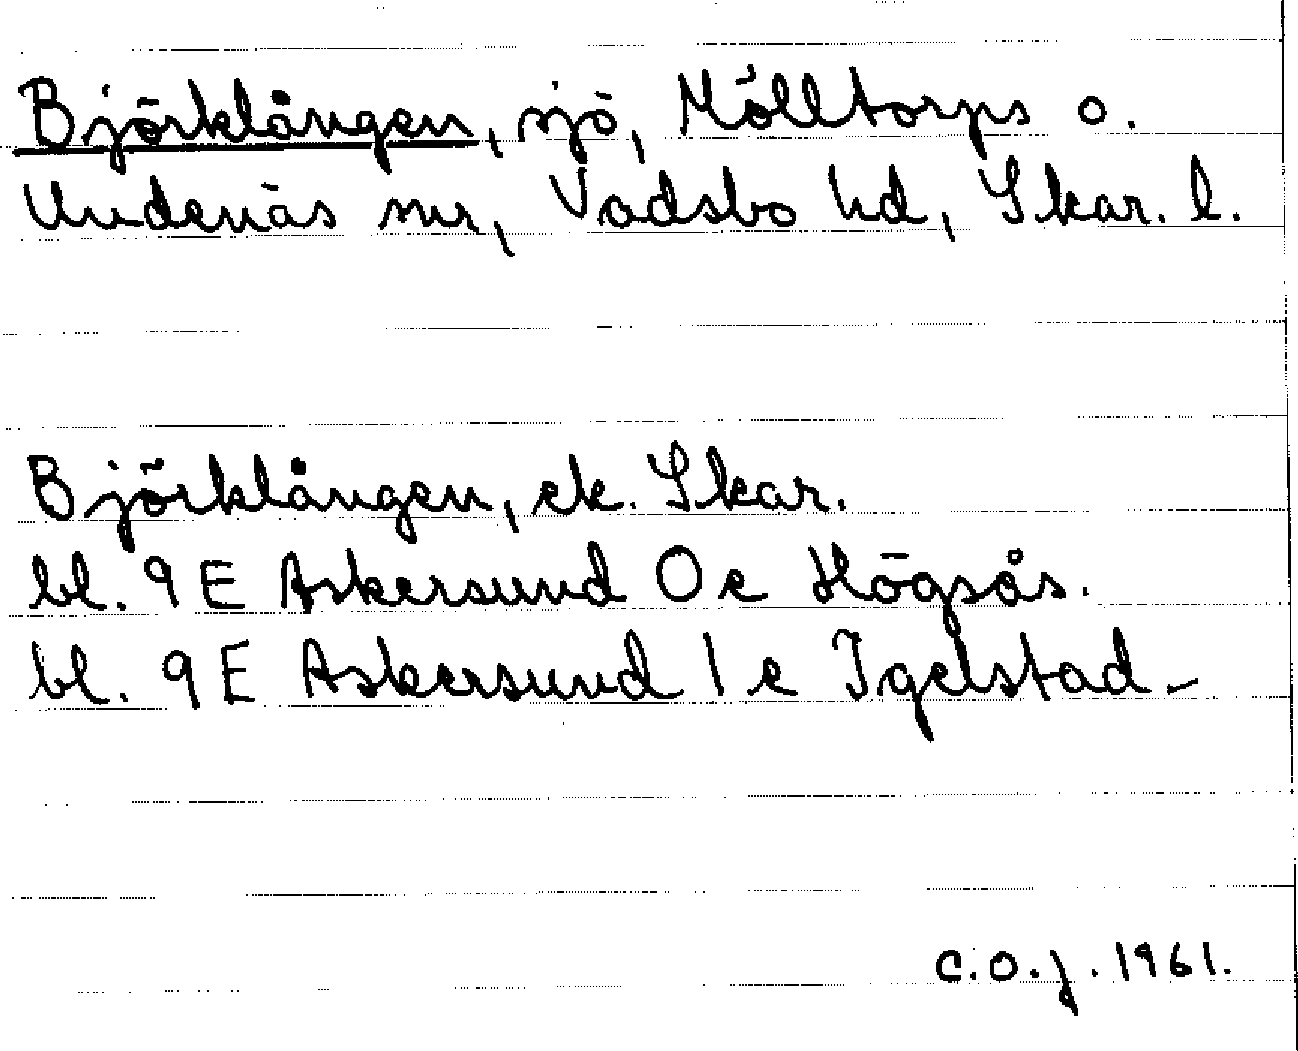 Björklången, sjö, Mölltorps o.
Undenäs snr, Vadsbo hd, Skar. l.
Björklången, ek. Skar.
bl. 9 E Askersund 0 e Högsås.
bl. 9 E Askersund 1 e Igelstad_
C.O.J. 1961.